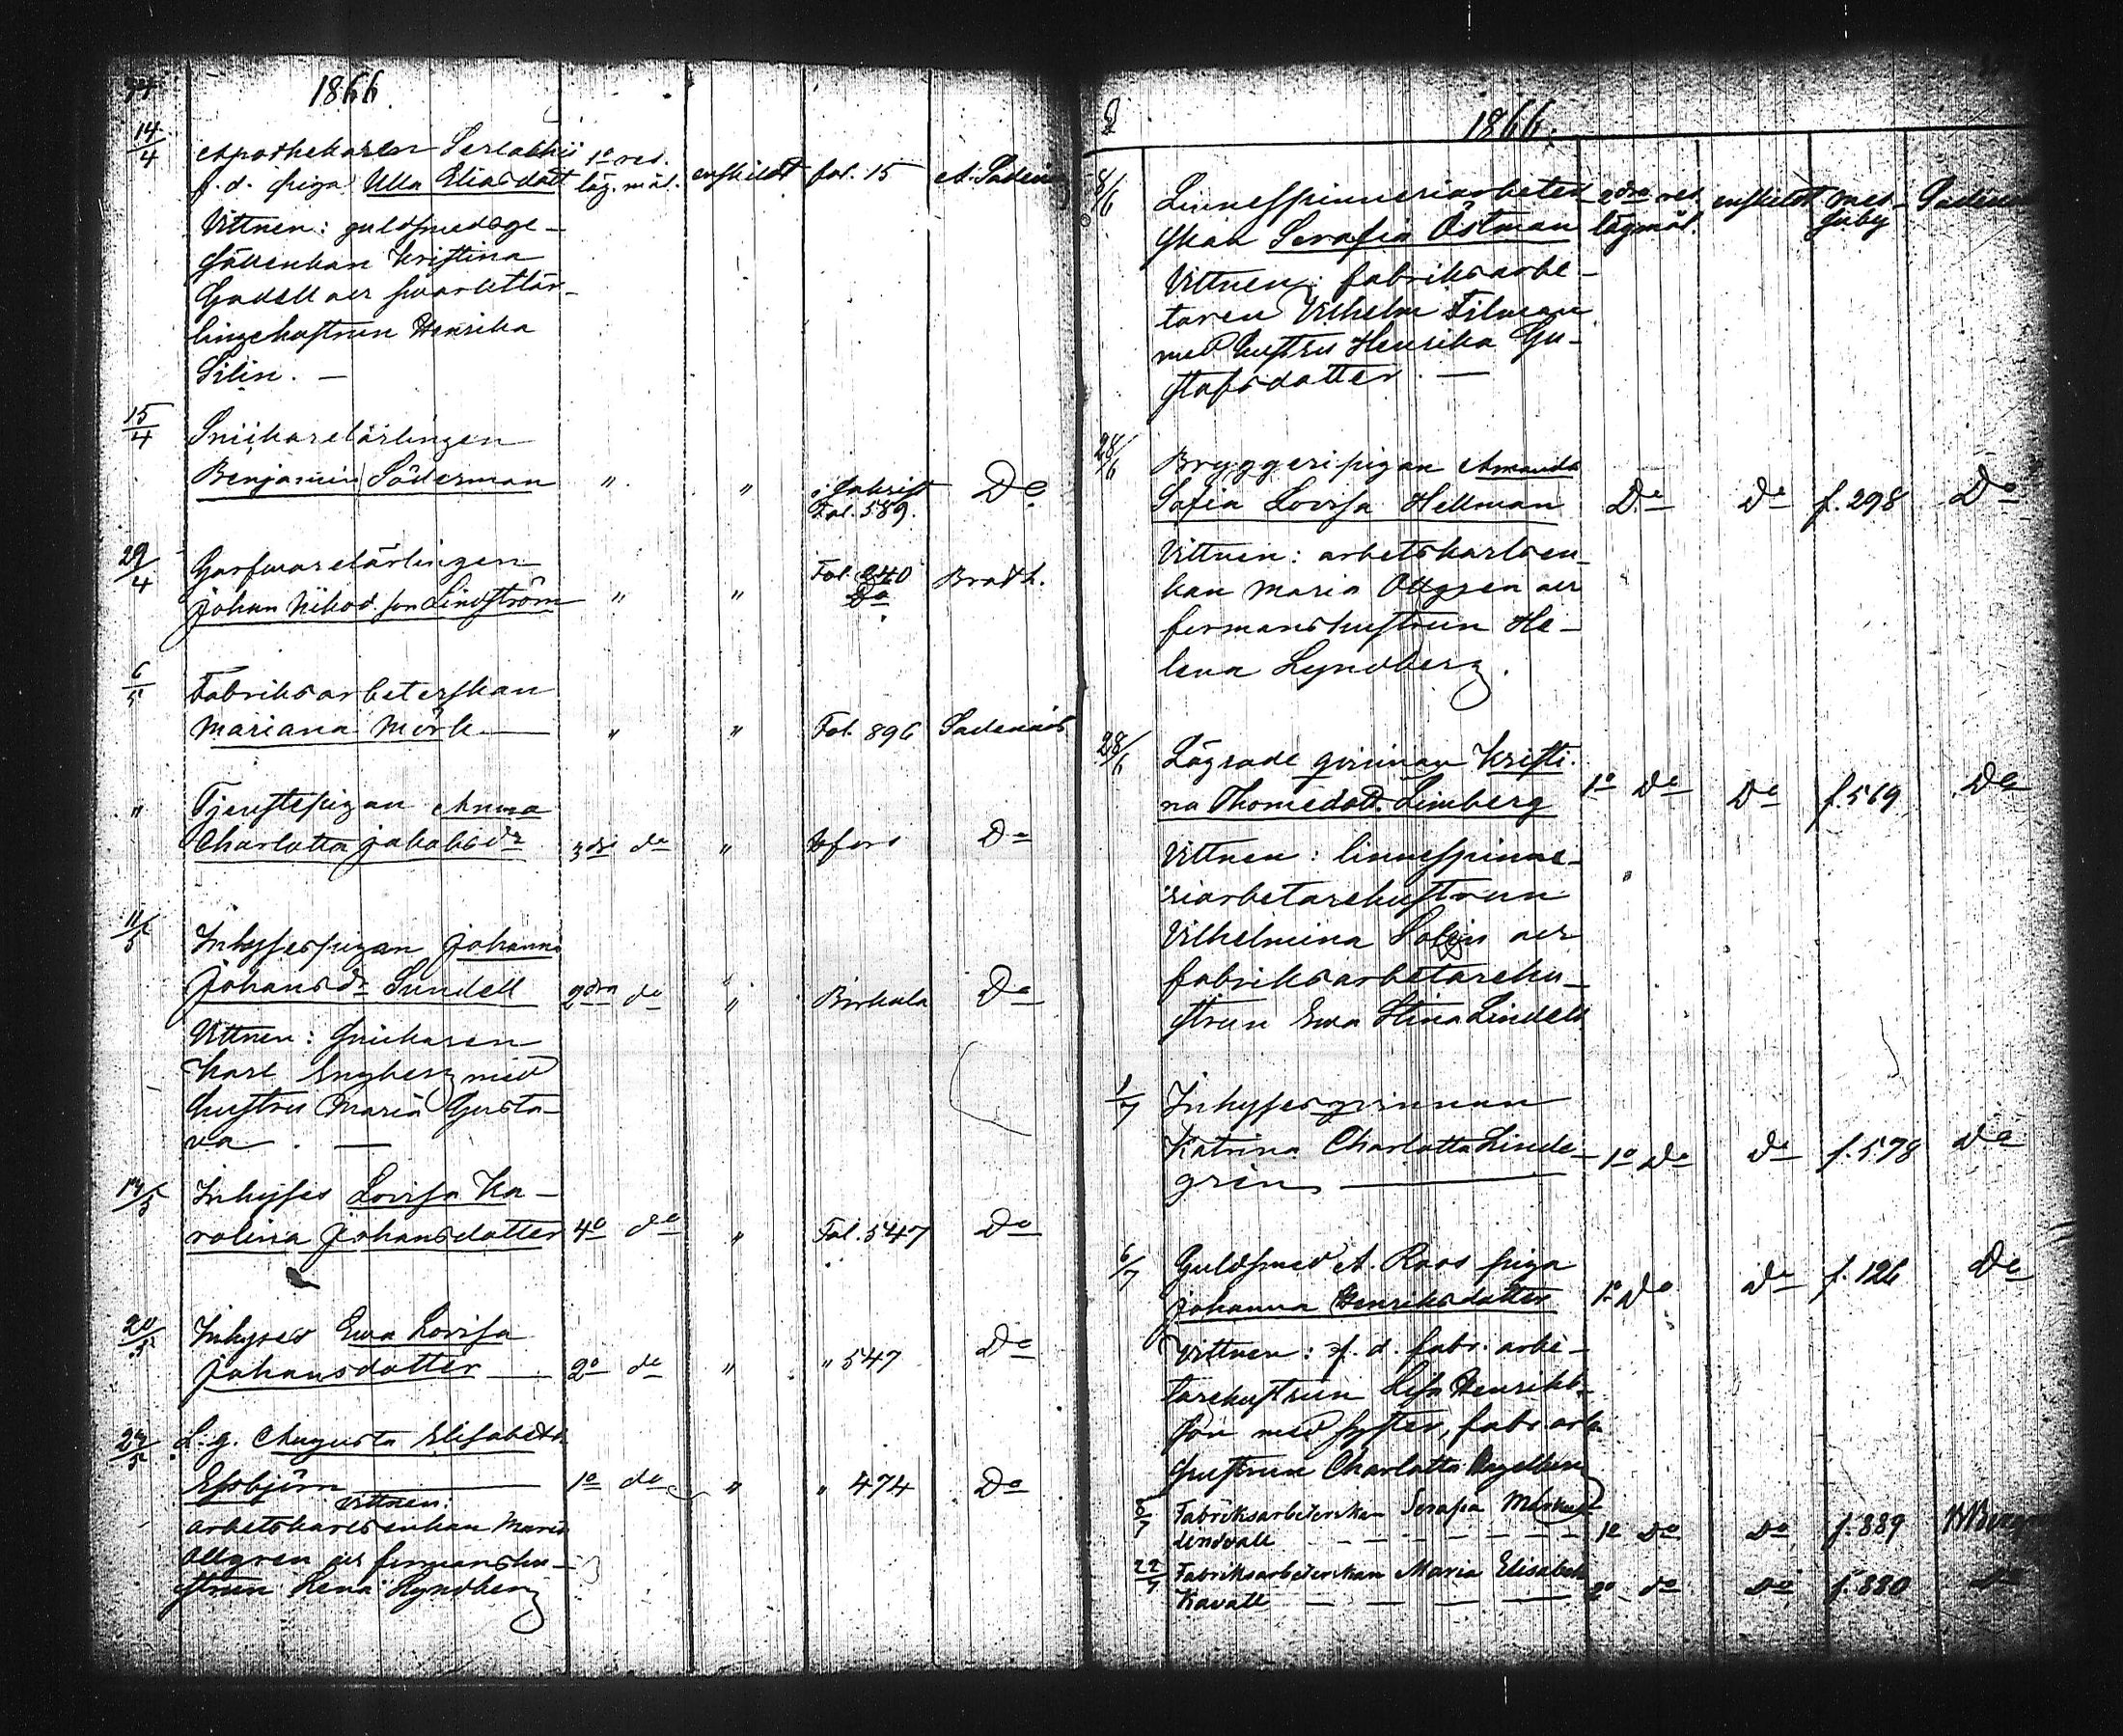 1866.
14/4 Apothekaren Serlachii 1o res.
f. d. piga Ulla Eliasdott läg. mål. enskildt fol. 15
Vittnen: guldsmedsge-
sällenkan Kristina
Gadell och svarfvarelär-
lingehustrun Henrika
Silin. —
15/4 Snickarelärlingen
Benjamin Söderman " " Fol. 589. Do
29/4 Garfvarelärlingen Fol. 240
Johan Nikod. son Lindström " " Do
6/5 Fabriksarbeterskan
Mariana Mörk — " " Fol. 896 Sadenius
" Tjenstepigan Anna
Charlotta Jakobsdr 3dje do " Hfors Do
11/5 Inhysespigan Johanna
Johansdr Sundell 2dra do " Birkala Do
Vittnen: snickaren
Karl Engberg med
hustru Maria Gusta-
va. —
Inhyses Lovisa Ka-
rolina Johansdotter 4o do " Fol. 547 Do
20/5 Inhyses Ewa Lovisa
Johansdotter — 2o do " " 547 Do
L. g. Augusta Elisabeth
Essbjörn — 1o do " " 474 Do
Vittnen:
arbetskarlsenkan Maria
Ollgren och formanshu-
strun Lena Lyndberg
1866.
8/6 Linnespinneriarbeter- 2dra res. enskildt Mes-
skan Serafia Östman lägmål. suby
Vittnen: fabriksarbe-
taren Vilhelm Filman
med hustru Henrika Gu-
stafsdotter. —
28/6 Bryggeripigan Amanda
Sofia Lovisa Hellman Do Do f. 298 Do
Vittnen: arbetskarlsen-
kan Maria Ollgren och
formanshustrun He-
lena Lyndberg.
28/6 Lägrade qvinnan Kristi-
na Thomedott. Limberg 1o Do Do f. 569 Do
Vittnen: linnespinne-
riarbetarehustrun
Vilhelmina och
fabriksarbetarehu-
strun Ewa Stina Lindell
1/7 Inhysesqvinnan
Katrina Charlotta Linde- 1o Do Do f. 578 Do
gren —
6/7 Guldsmed A. Roos piga
Johanna Henriksdotter 1o Do Do f. 126 Do
Vittnen: f. d. fabr. arbe-
tarehustrun Lisa Henriks-
son med syster, fabr. arb.
hustrun Charlotta
8/7 Fabriksarbeterskan Serafia
Lindvall — 1o Do Do f. 889
22/7 Fabriksarbeterskan Maria Elisabeth
Kavall — 2o do Do f. 880 Do